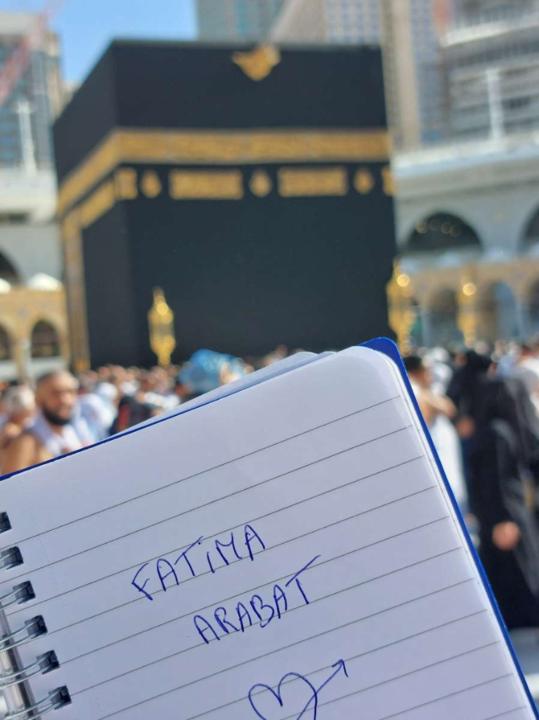 FATIMA
ARABAT